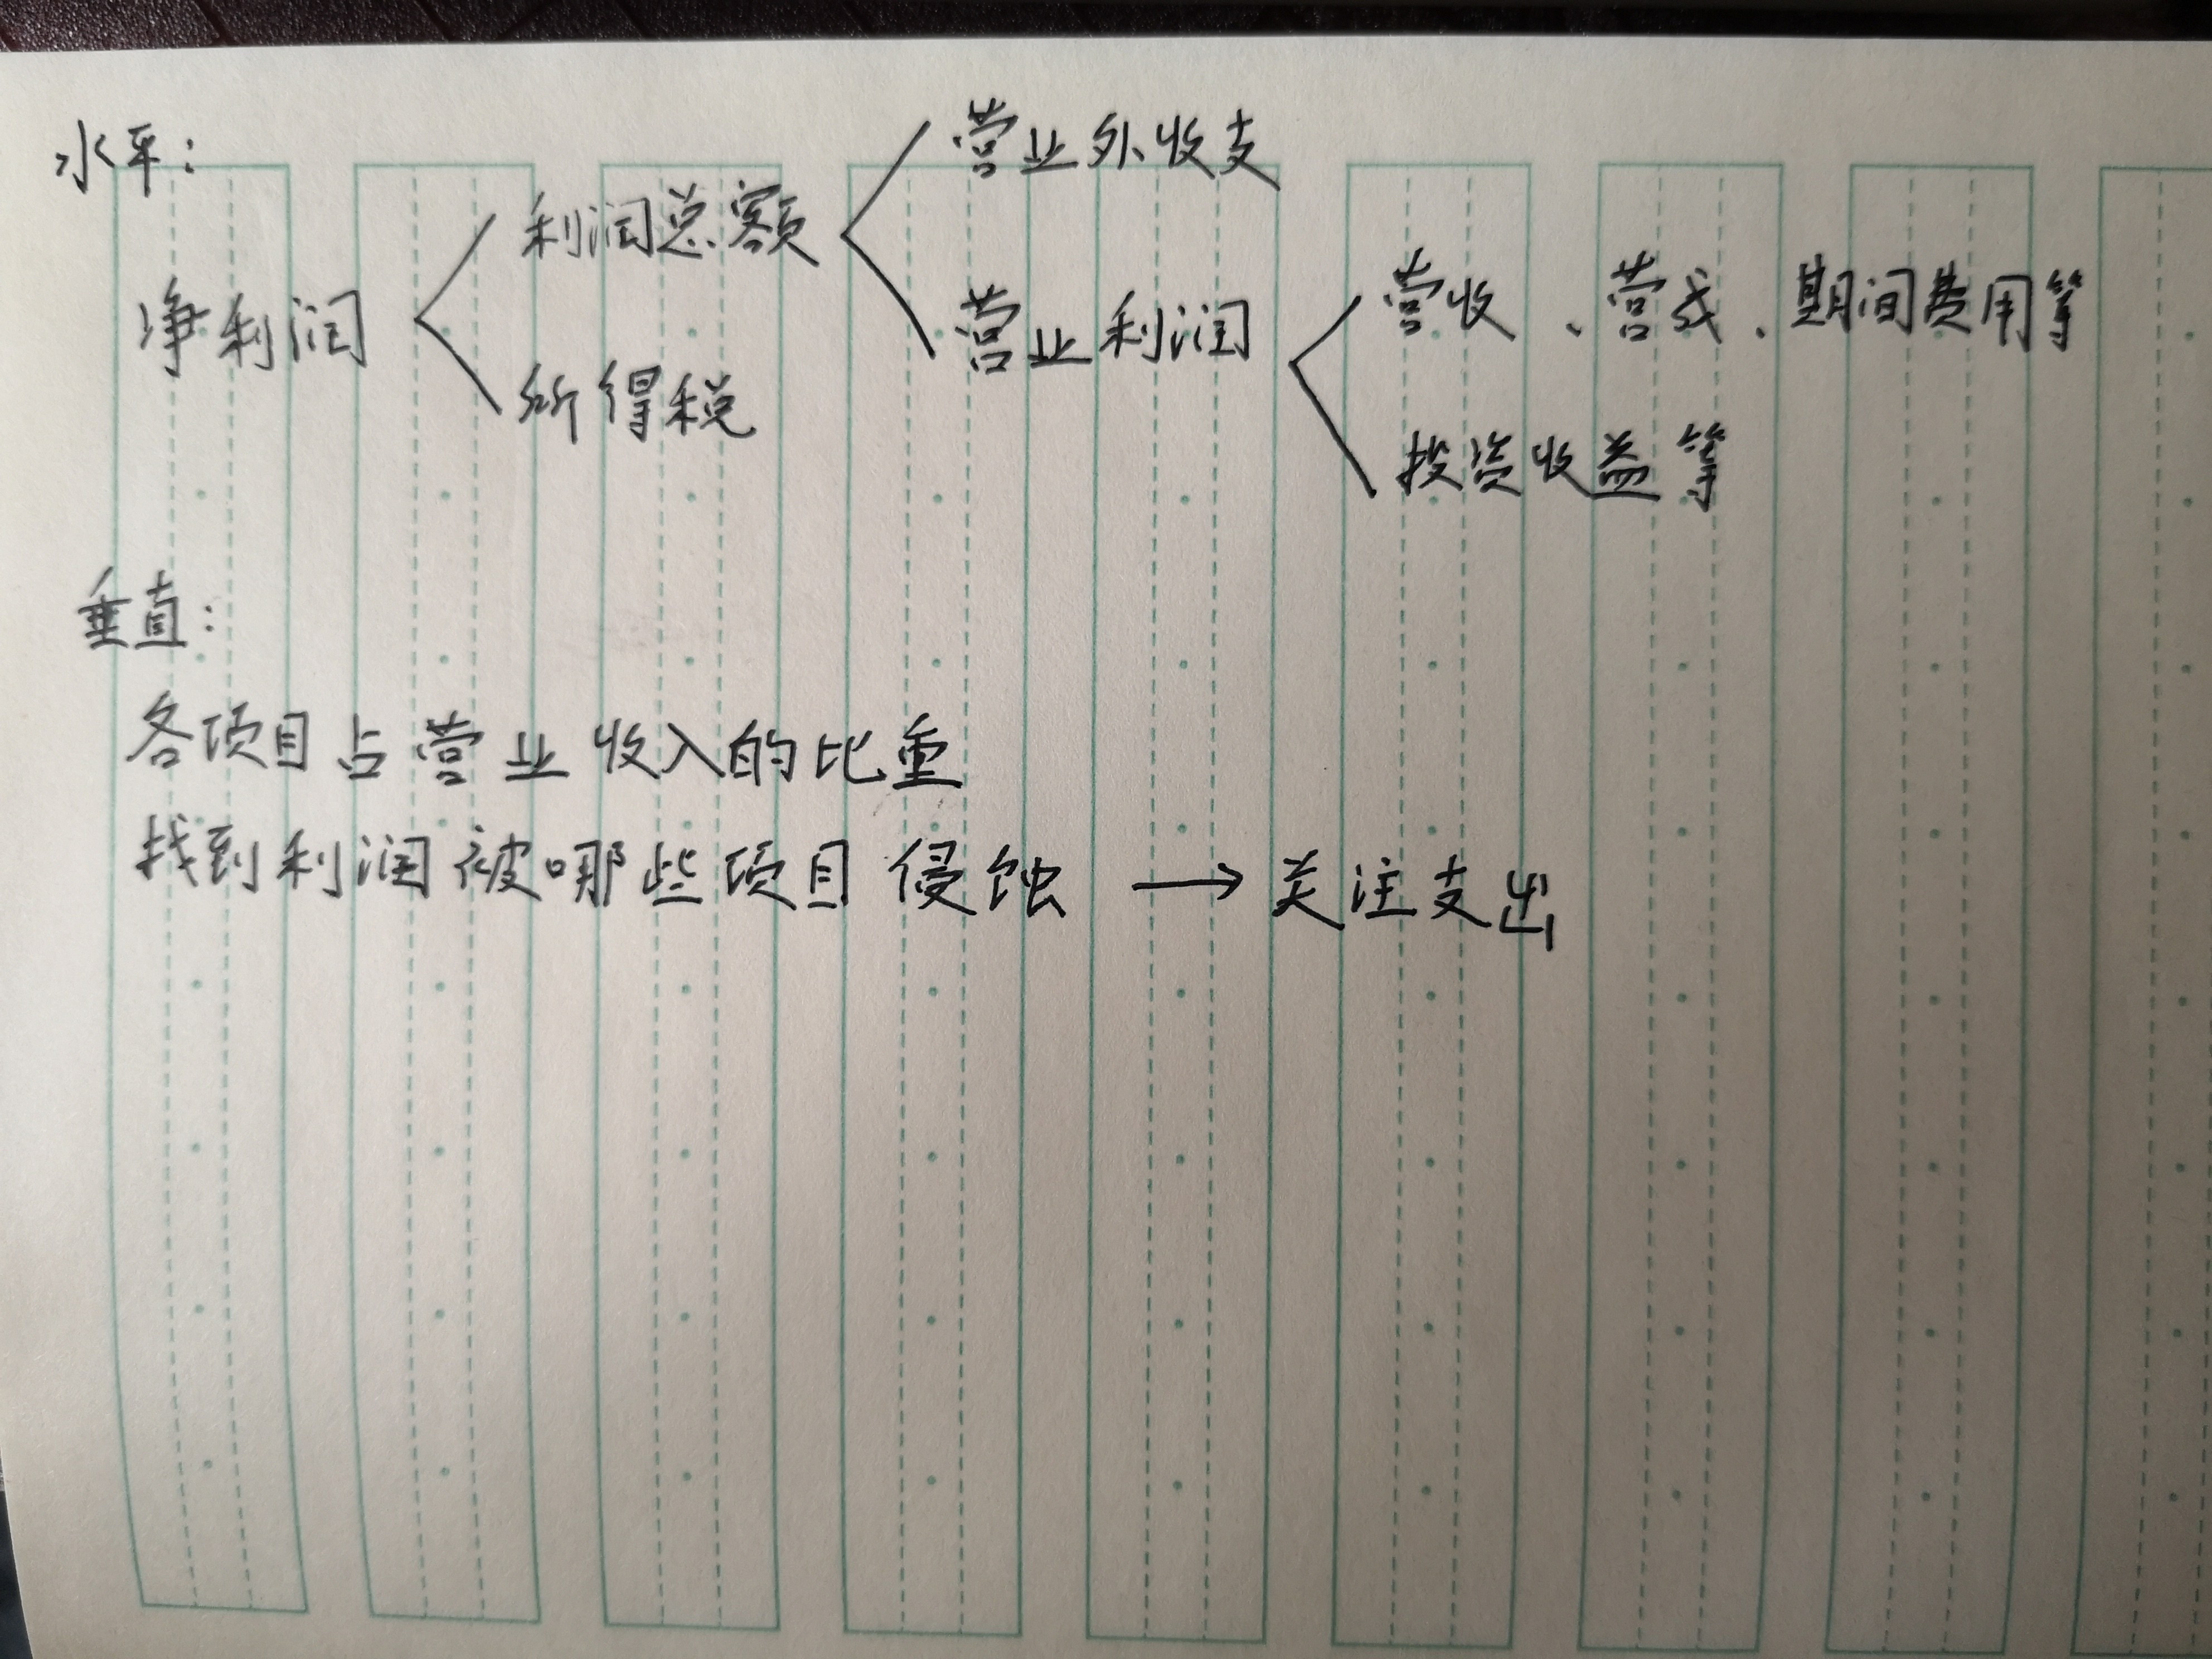 水平:
营业外收支
利润总额
净利润
营业利润
营收、营成、期间费用等
所得税
投资收益等
垂直:
各项目占营业收入的比重
找到利润被哪些项目侵蚀 → 关注支出